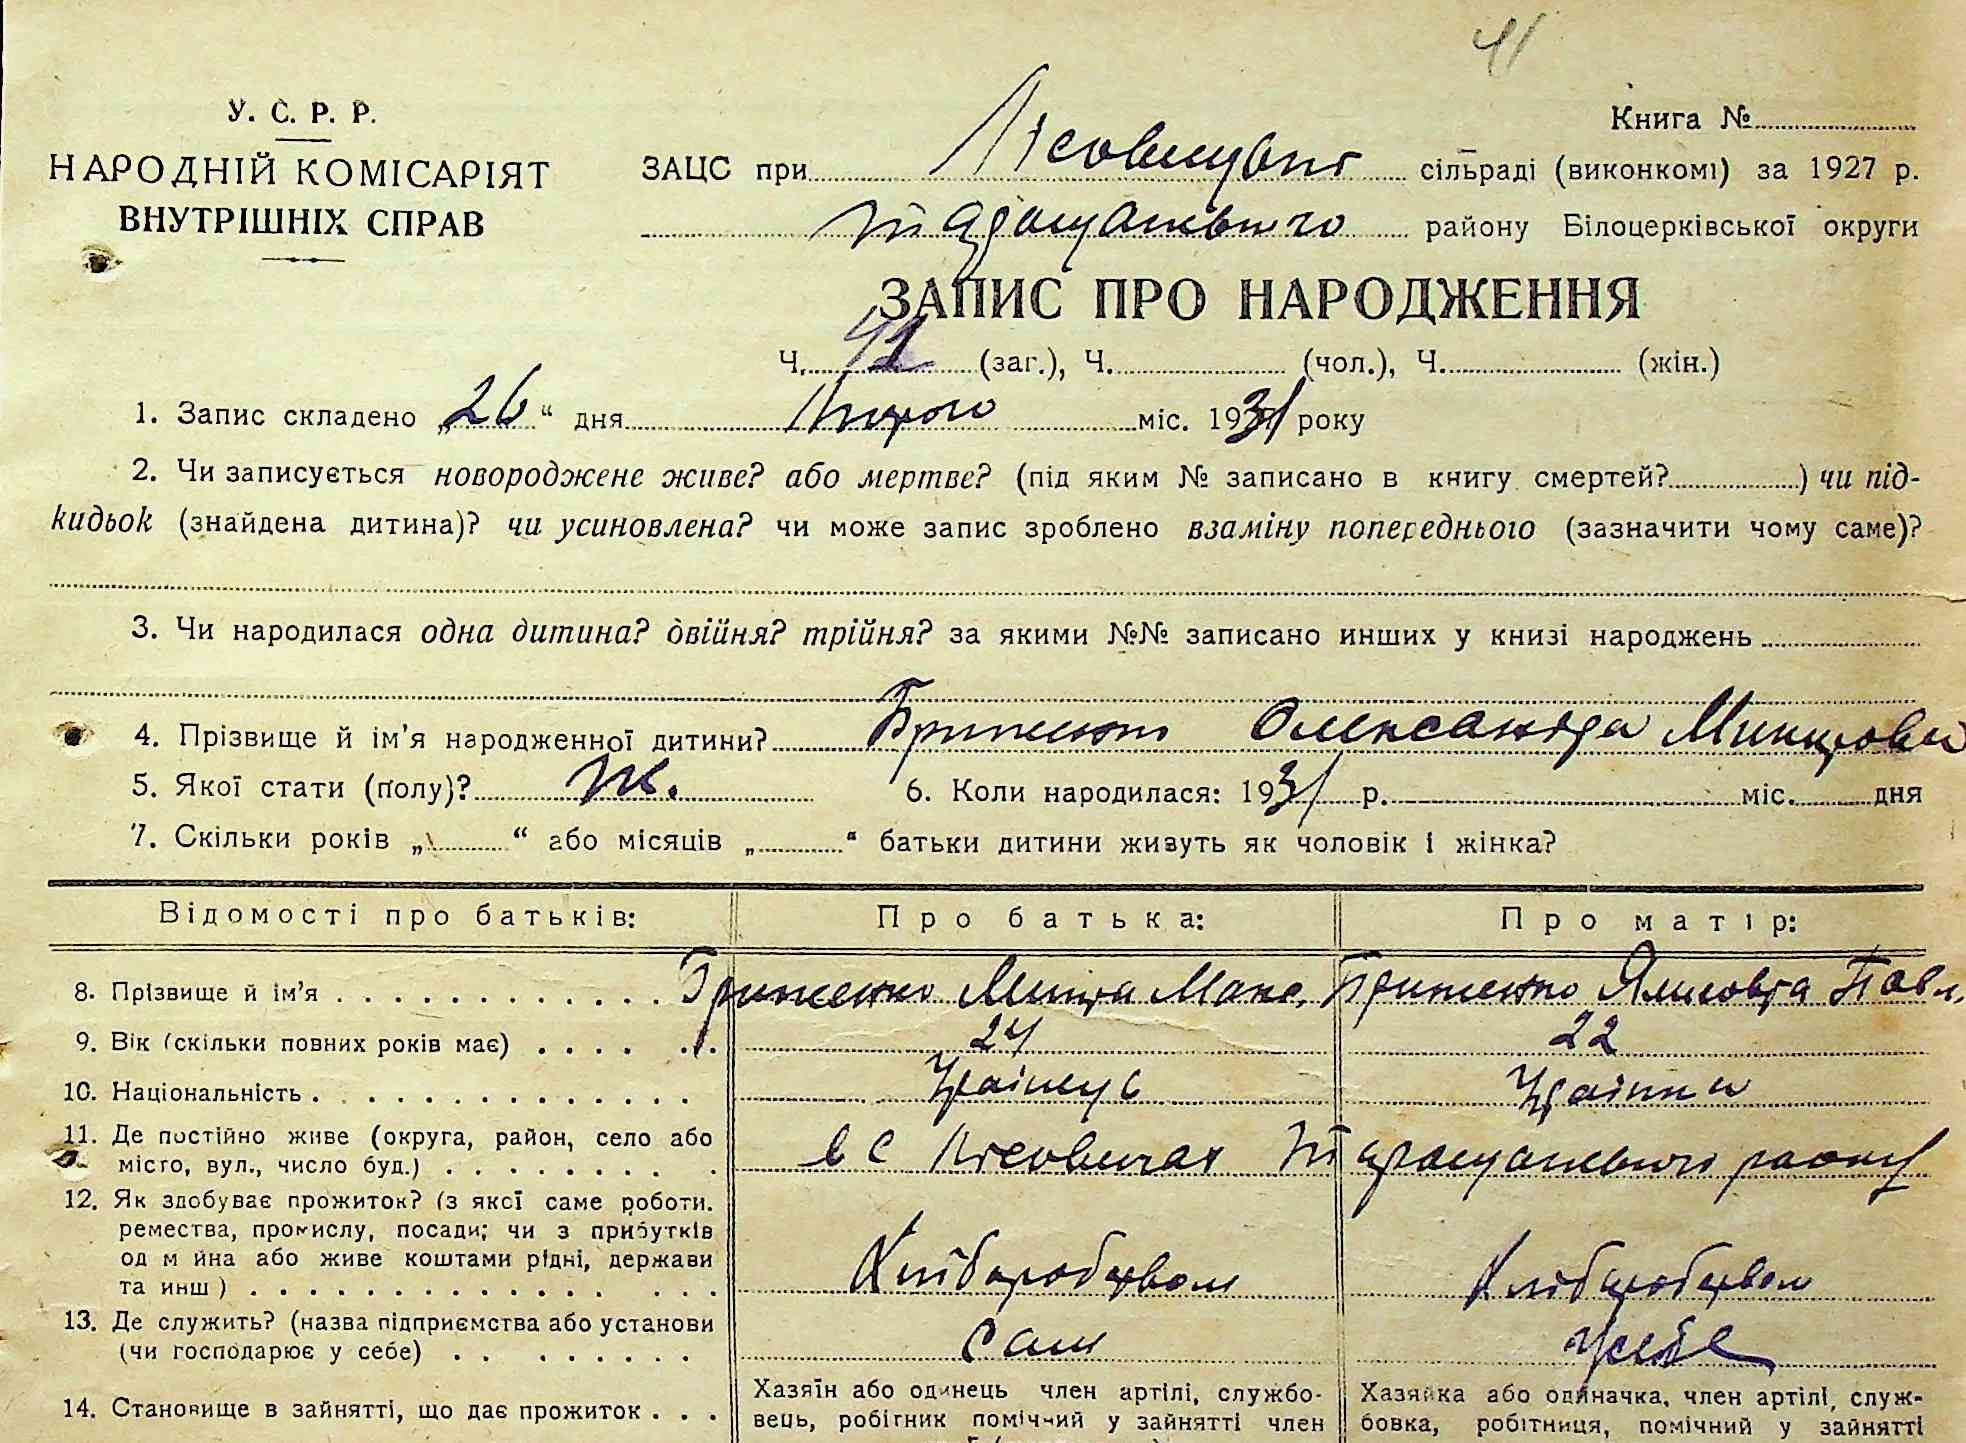 41
У. С. Р. Р.
Книга №
НАРОДНІЙ КОМІСАРІЯТ
ВНУТРІШНІХ СПРАВ
ЗАЦС при сільраді (виконкомі) за 1927 р.
Таращанського району Білоцерківської округи
ЗАПИС ПРО НАРОДЖЕННЯ
Ч. 41 (заг.), Ч. (чол.), Ч. (жін.)
1. Запис складено „26“ дня Лютого міс. 1931 року
2. Чи записується новороджене живе? або мертве? (під яким № записано в книгу смертей? ) чи під-
кидьок (знайдена дитина)? чи усиновлена? чи може запис зроблено взаміну попереднього (зазначити чому саме)?
3. Чи народилася одна дитина? двійня? трійня? за якими №№ записано инших у книзі народжень
4. Прізвище й ім’я народженної дитини? Олександра
5. Якої стати (полу)? ж. 6. Коли народилася: 1931 р. міс. дня
7. Скільки років „ “ або місяців „ “ батьки дитини живуть як чоловік і жінка?
Відомості про батьків: Про батька: Про матір:
8. Прізвище й ім’я Бриженко Бриженко
9. Вік (скільки повних років має) 24 22
10. Національність
11. Де постійно живе (округа, район, село або
місто, вул., число буд.) в с Лісовичах Таращанського району
12. Як здобуває прожиток? (з якої саме роботи.
ремества, промислу, посади; чи з прибутків
од м йна або живе коштами рідні, держави
та инш) Хліборобством Хліборобством
13. Де служить? (назва підприємства або установи
(чи господарює у себе) сам У себе
14. Становище в зайнятті, що дає прожиток
Хазяїн або одинець член артілі, службо-
вець, робітник помічний у зайнятті член
Хазяйка або одиначка, член артілі, служ-
бовка, робітниця, помічний у зайнятті